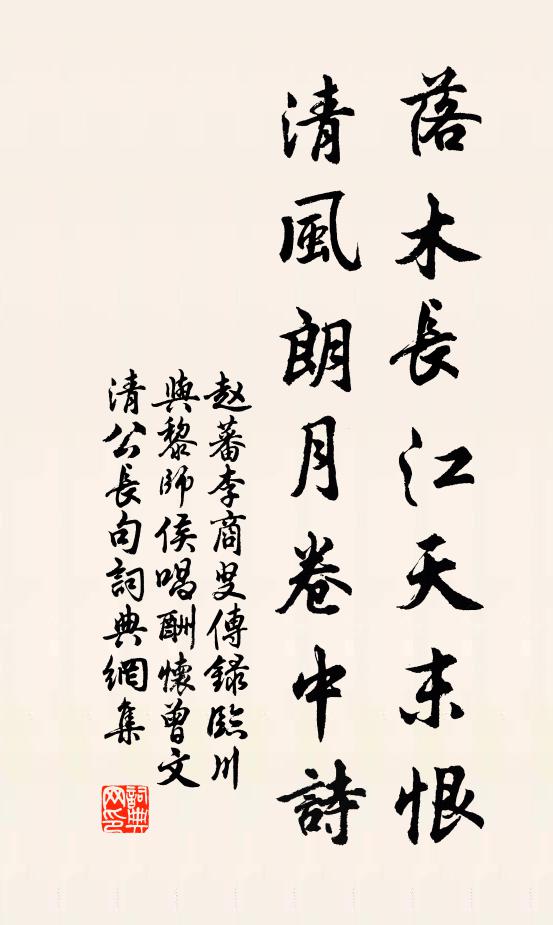 落木長江天末恨
清風朗月卷中詩
赵蕃李商叟傳錄臨川
與黎師侯唱酬懷曾文
清公長句詞典網集
詞典网印